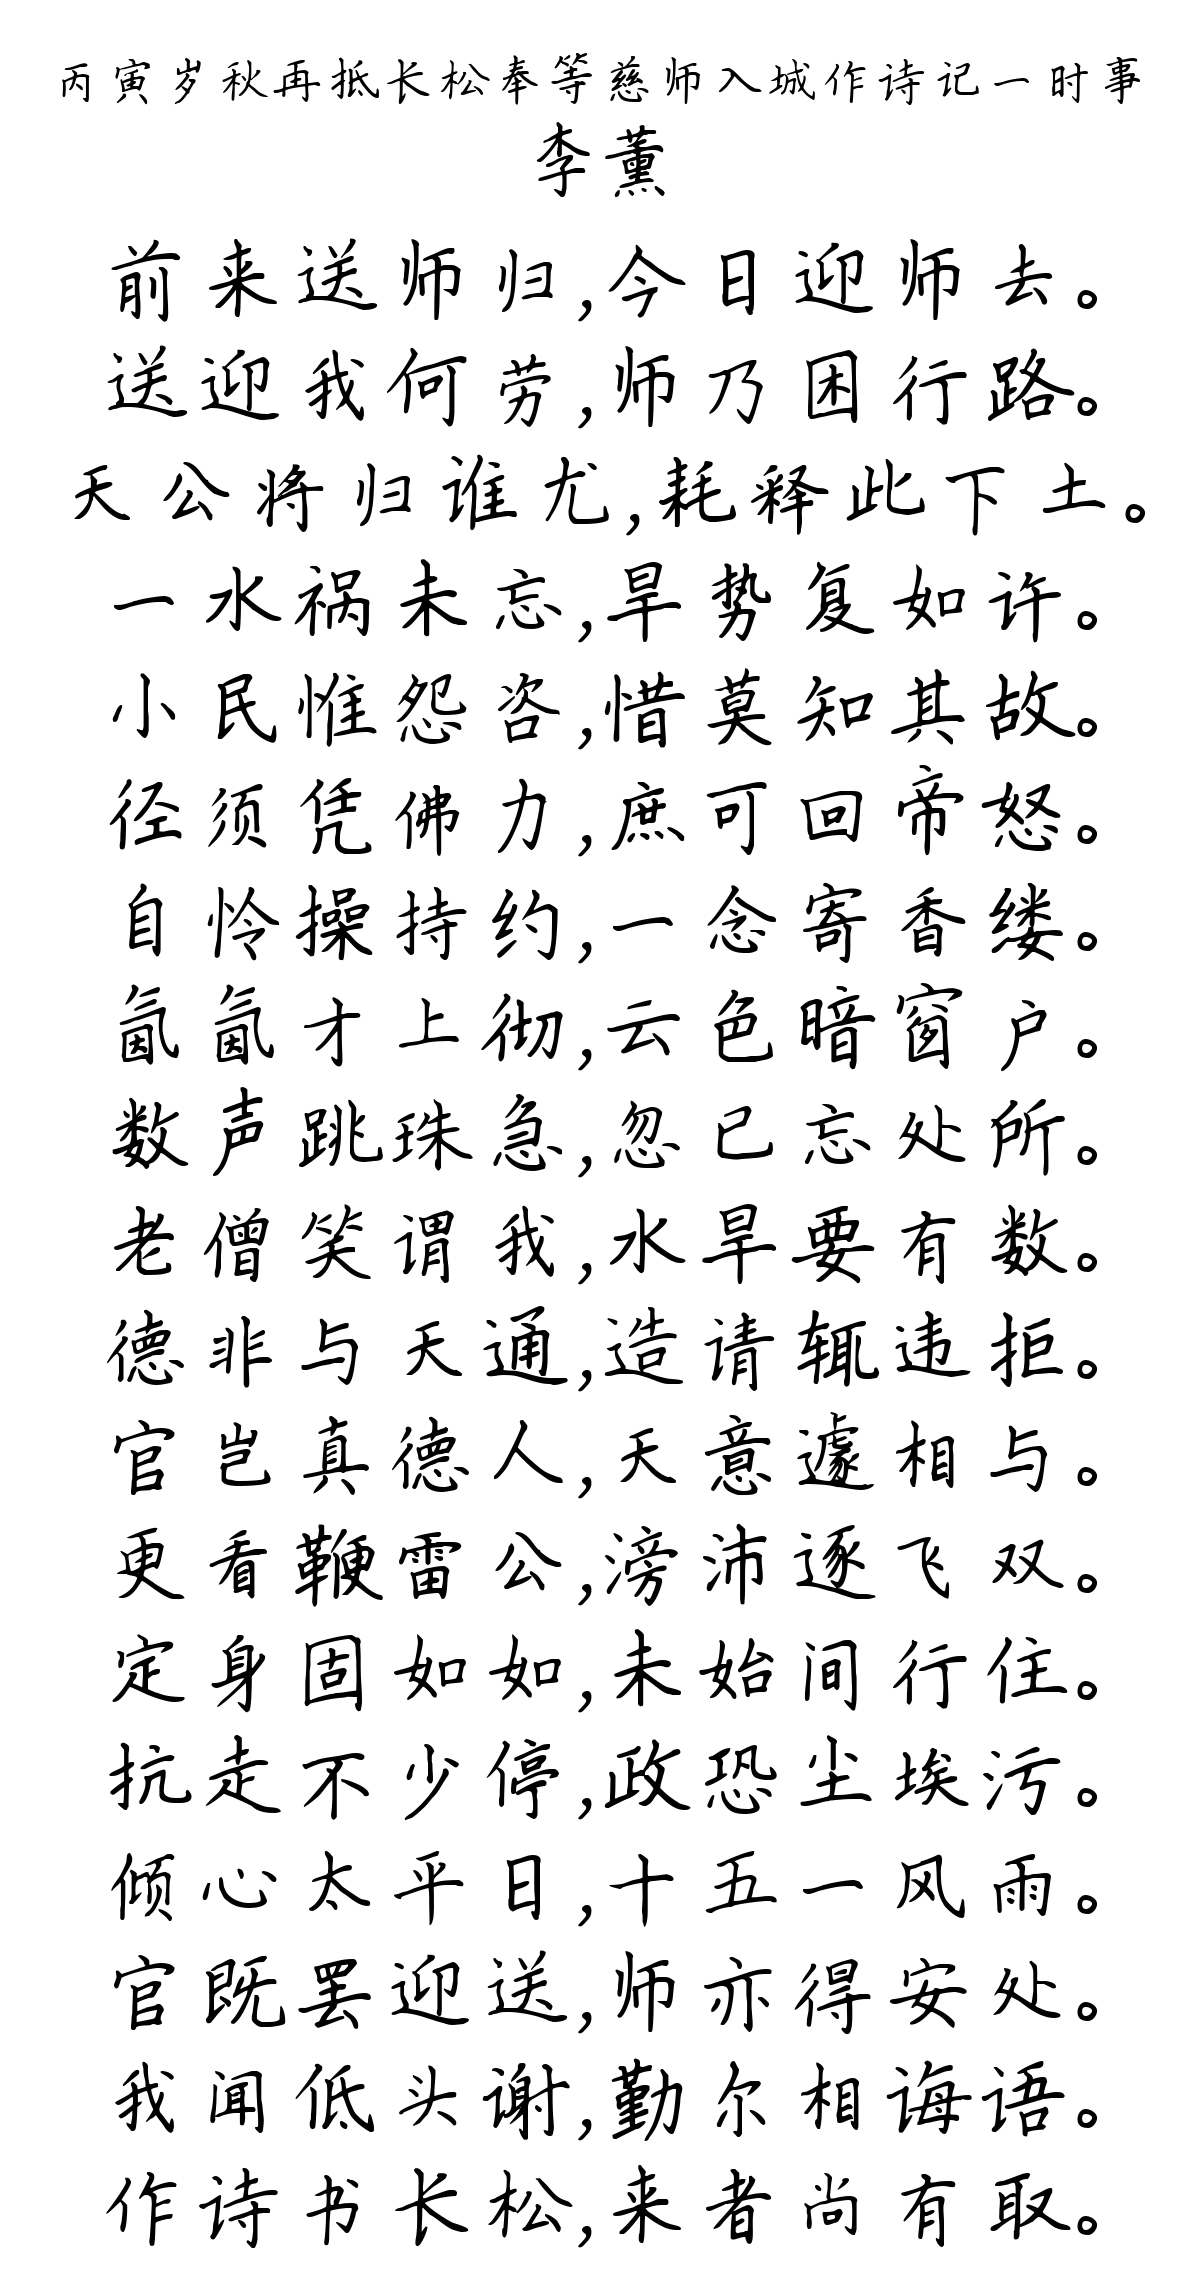 丙寅岁秋再抵长松奉等慈师入城作诗记一时事
李薰
前来送师归,今日迎师去。
送迎我何劳,师乃困行路。
天公将归谁尤,耗释此下土。
一水祸未忘,旱势复如许。
小民惟怨咨,惜莫知其故。
径须凭佛力,庶可回帝怒。
自怜操持约,一念寄香缕。
氤氤才上彻,云色暗窗户。
数声跳珠急,忽已忘处所。
老僧笑谓我,水旱要有数。
德非与天通,造请辄违拒。
官岂真德人,天意遽相与。
更看鞭雷公,滂沛逐飞双。
定身固如如,未始间行住。
抗走不少停,政恐尘埃污。
倾心太平日,十五一风雨。
官既罢迎送,师亦得安处。
我闻低头谢,勤尔相诲语。
作诗书长松,来者尚有取。